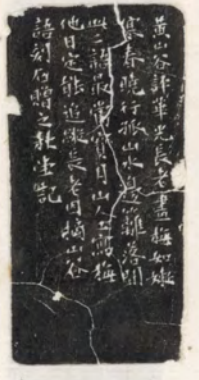 黄山谷評華光長老畫梅如嫩
寒春曉行孤山水邊籬落間
此二語最當賓月山人工寫梅
他日定能追蹤長老因摘山谷
語刻石贈之秋生記